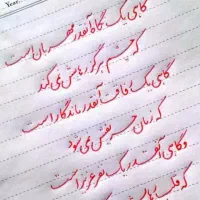 Year.
گاهی یک نگاه آنقدر مهربان است
که چشم هرگز رهایش نمی کند
گاهی یک رفاقت آنقدر ماندگار است
که زمان حریفش نمی شود
و گاهی آنقدر یک نفر عزیز است
که قلب